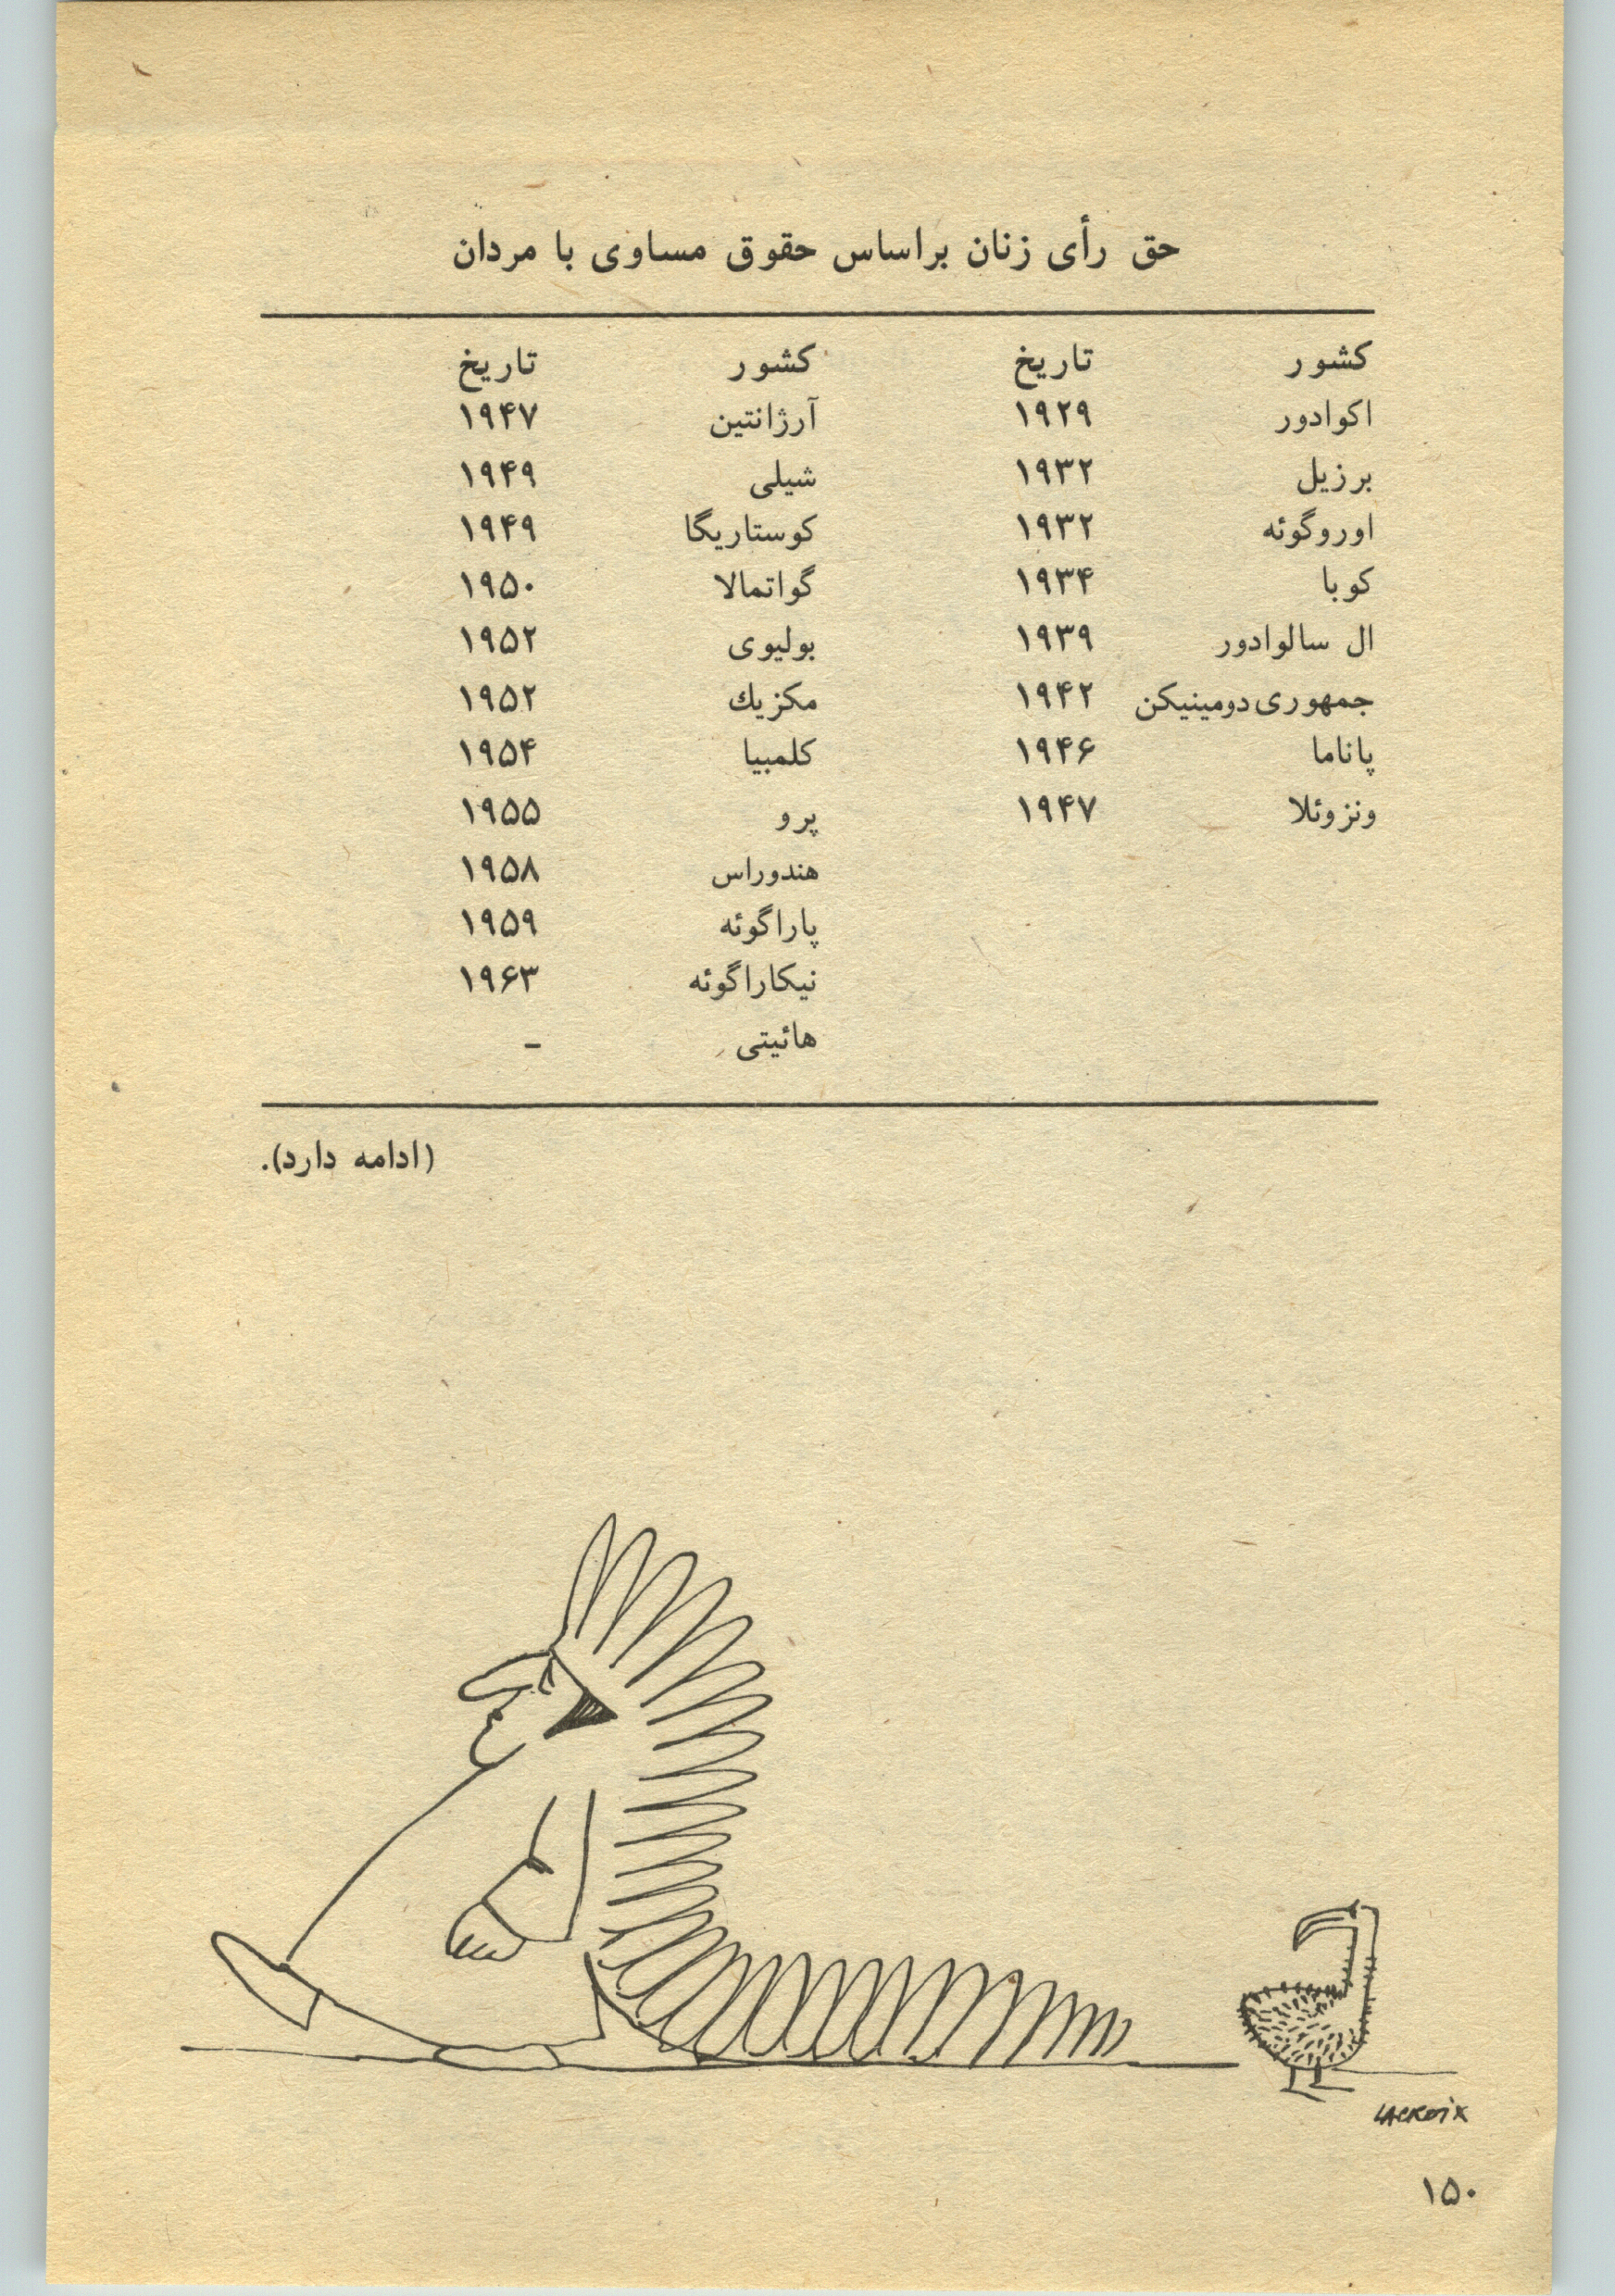 حق رأی زنان براساس حقوق مساوی با مردان
کشور تاریخ کشور تاریخ
اکوادور ۱۹۲۹ آرژانتین ۱۹۴۷
برزیل ۱۹۳۲ شیلی ۱۹۴۹
اوروگوئه ۱۹۳۲ کوستاریگا ۱۹۴۹
کوبا ۱۹۳۴ گواتمالا ۱۹۵۰
ال سالوادور ۱۹۳۹ بولیوی ۱۹۵۲
جمهوری دومینیکن ۱۹۴۲ مکزیك ۱۹۵۲
پاناما ۱۹۴۶ کلمبیا ۱۹۵۴
ونزوئلا ۱۹۴۷ پرو ۱۹۵۵
هندوراس ۱۹۵۸
پاراگوئه ۱۹۵۹
نیکاراگوئه ۱۹۶۳
هائیتی –
(ادامه دارد).
LACROIX
۱۵۰